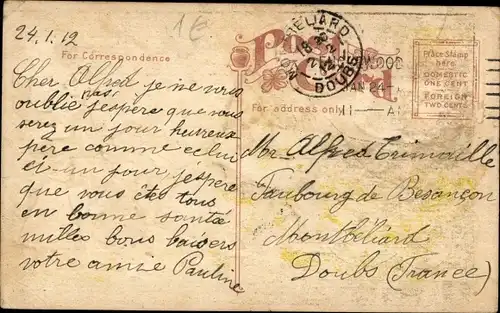 24.1.12
1€
Post Card
For Correspondence
For address only
Place Stamp
here
DOMESTIC
ONE CENT
FOREIGN
TWO CENTS
MONTBELIARD
DOUBS
WOOD
JAN 24
11 — A
Cher Alfred je ne vous
oublie pas j'espère que vous
serez un jour heureux
père comme celui
ci un jour j'espère
que vous êtes tous
en bonne santé
milles bons baisers
votre amie Pauline
Mor Alfred
Faubourg de Besançon
Montbéliard
Doubs (France)